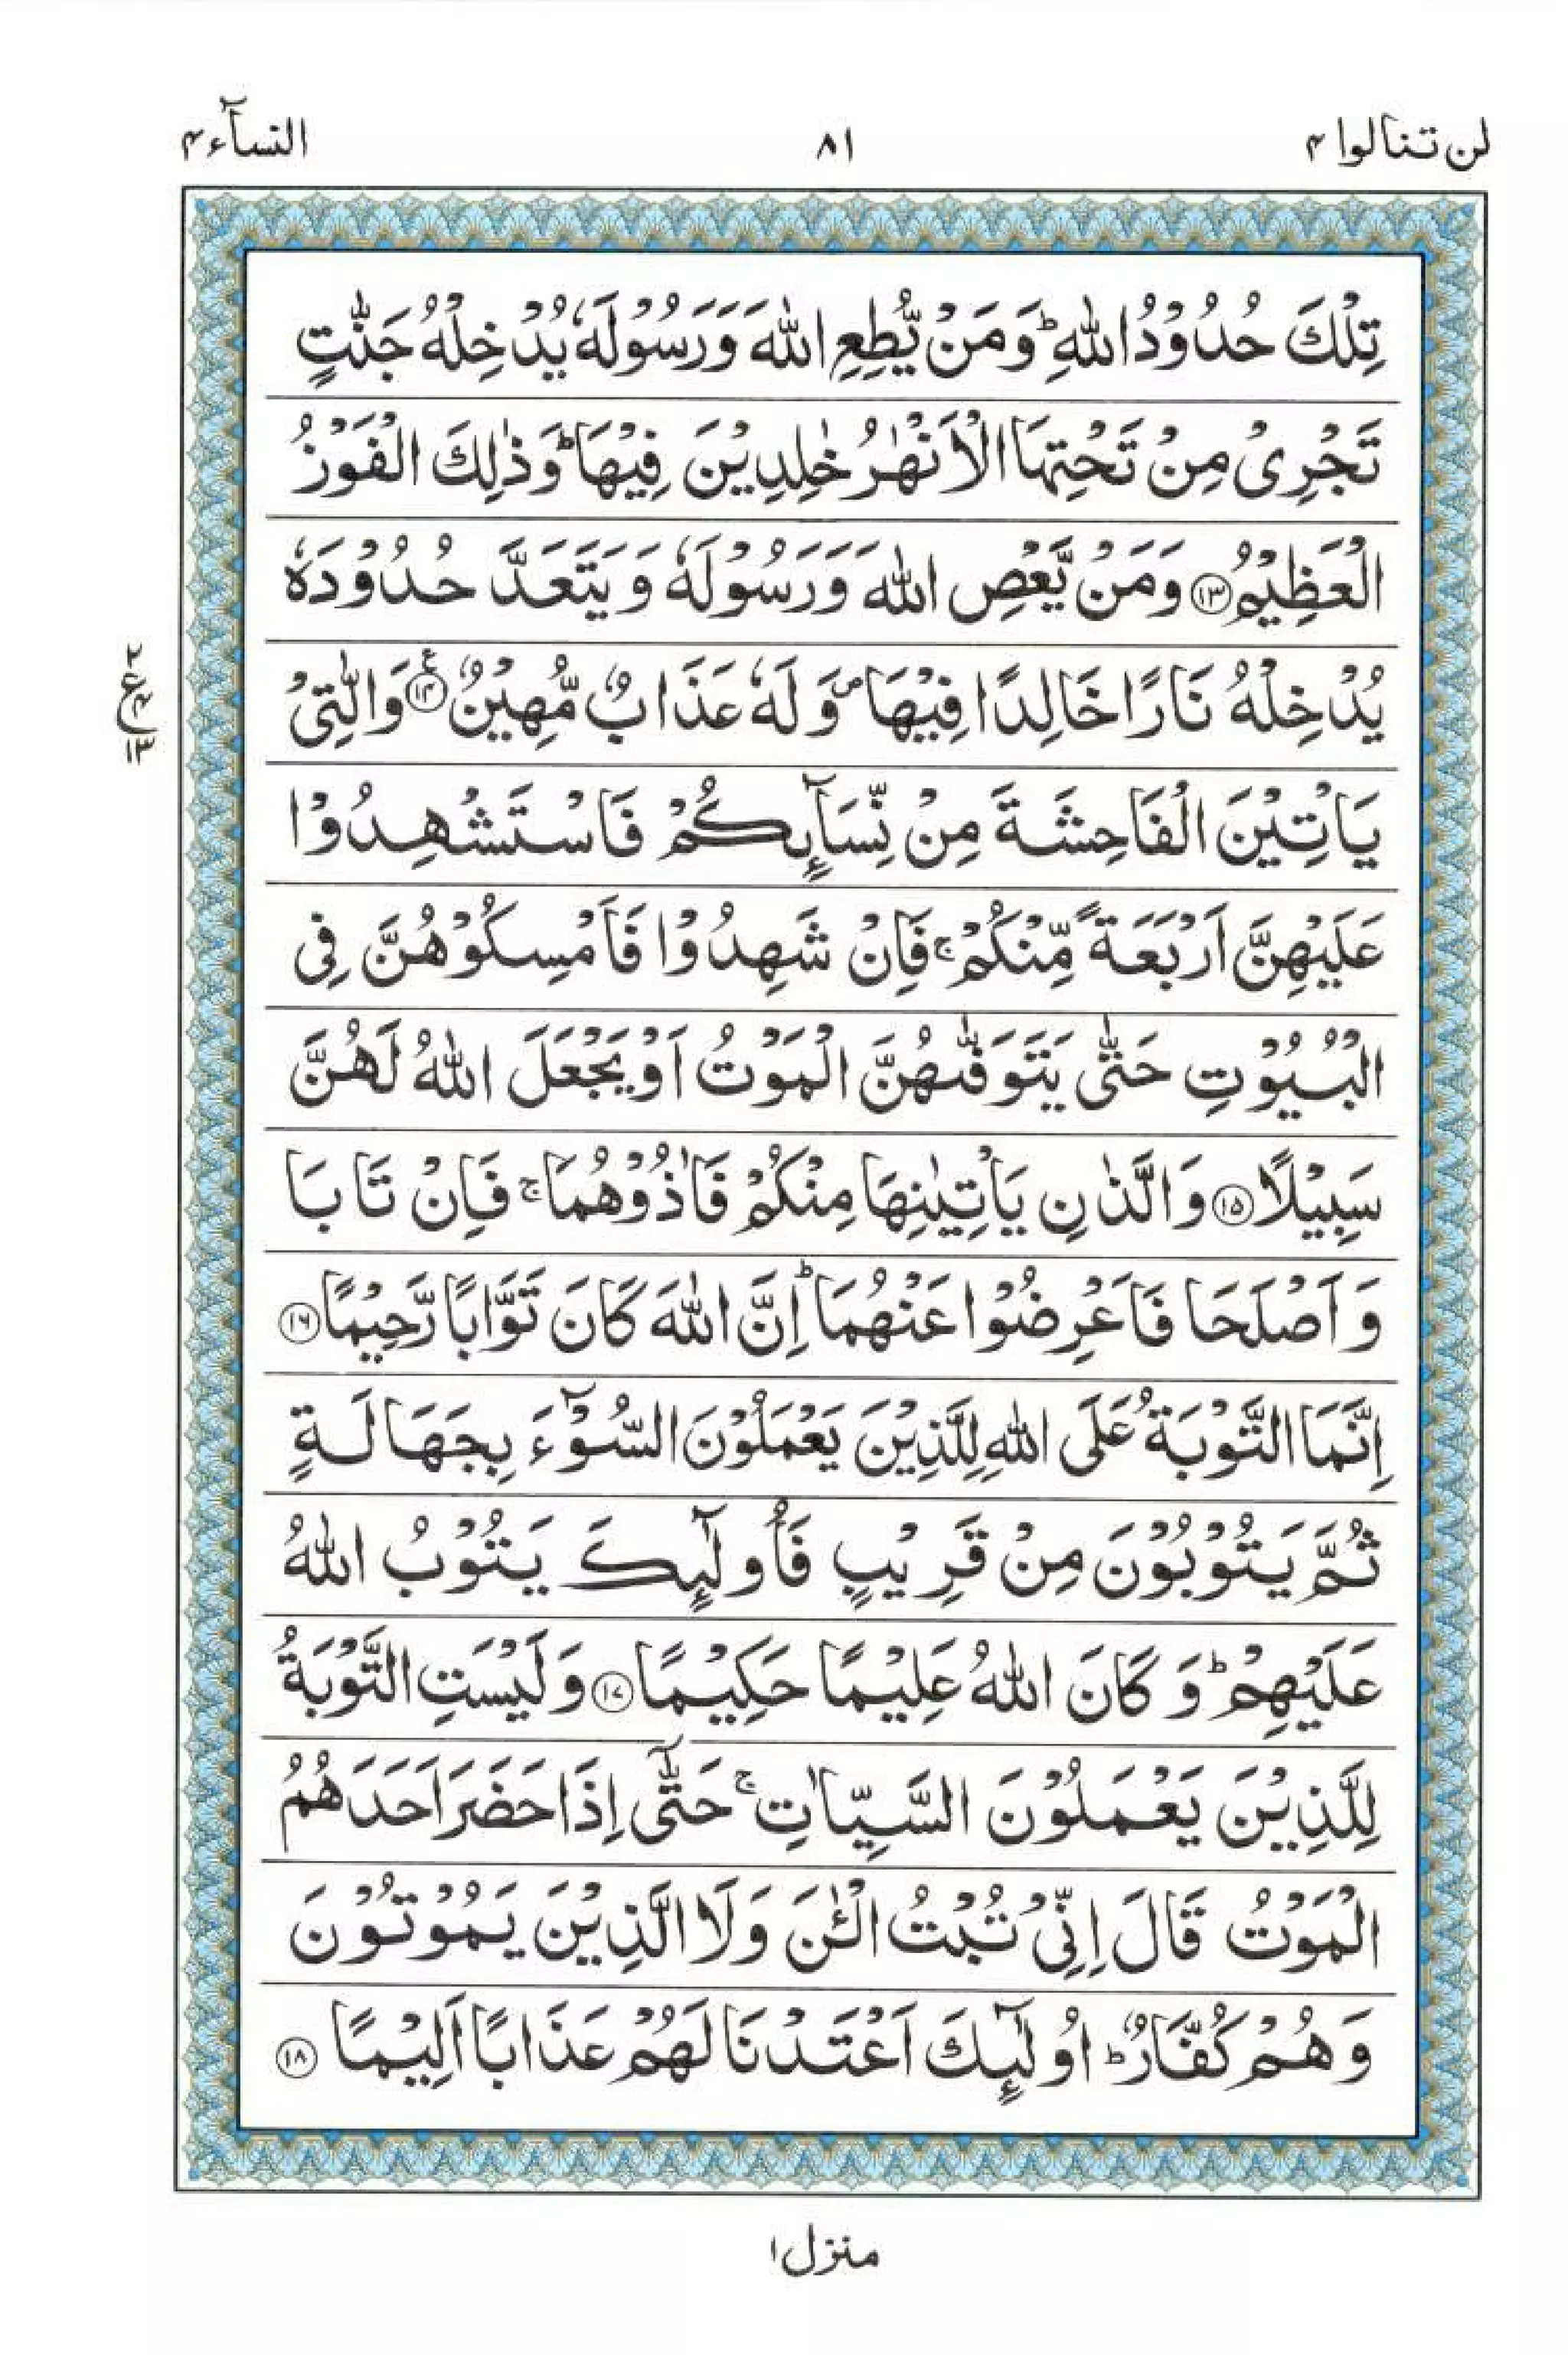 لن تنالوا ۴
۸۱
النسآء ۴
تِلْكَ حُدُوْدُ اللّٰهِ ؕ وَمَنْ يُّطِعِ اللّٰهَ وَرَسُوْلَهٗ يُدْخِلْهُ جَنّٰتٍ
تَجْرِىْ مِنْ تَحْتِهَا الْاَنْهٰرُ خٰلِدِيْنَ فِيْهَا ؕ وَذٰلِكَ الْفَوْزُ
الْعَظِيْمُ ﴿۱۳﴾ وَمَنْ يَّعْصِ اللّٰهَ وَرَسُوْلَهٗ وَيَتَعَدَّ حُدُوْدَهٗ
يُدْخِلْهُ نَارًا خَالِدًا فِيْهَا ۪ وَلَهٗ عَذَابٌ مُّهِيْنٌ ﴿۱۴﴾ ع وَالّٰتِىْ
۲
ع ۴
۱۳
يَاْتِيْنَ الْفَاحِشَةَ مِنْ نِّسَآٮِٕكُمْ فَاسْتَشْهِدُوْا
عَلَيْهِنَّ اَرْبَعَةً مِّنْكُمْ ۚ فَاِنْ شَهِدُوْا فَاَمْسِكُوْهُنَّ فِى
الْبُيُوْتِ حَتّٰى يَتَوَفّٰٮهُنَّ الْمَوْتُ اَوْ يَجْعَلَ اللّٰهُ لَهُنَّ
سَبِيْلًا ﴿۱۵﴾ وَالَّذٰنِ يَاْتِيٰنِهَا مِنْكُمْ فَاٰذُوْهُمَا ۚ فَاِنْ تَابَا
وَاَصْلَحَا فَاَعْرِضُوْا عَنْهُمَا ؕ اِنَّ اللّٰهَ كَانَ تَوَّابًا رَّحِيْمًا ﴿۱۶﴾
اِنَّمَا التَّوْبَةُ عَلَى اللّٰهِ لِلَّذِيْنَ يَعْمَلُوْنَ السُّوْٓءَ بِجَهَالَةٍ
ثُمَّ يَتُوْبُوْنَ مِنْ قَرِيْبٍ فَاُولٰٓٮِٕكَ يَتُوْبُ اللّٰهُ
عَلَيْهِمْ ؕ وَكَانَ اللّٰهُ عَلِيْمًا حَكِيْمًا ﴿۱۷﴾ وَلَيْسَتِ التَّوْبَةُ
لِلَّذِيْنَ يَعْمَلُوْنَ السَّيِّاٰتِ ۚ حَتّٰٓى اِذَا حَضَرَ اَحَدَهُمُ
الْمَوْتُ قَالَ اِنِّىْ تُبْتُ الْـٰٔنَ وَلَا الَّذِيْنَ يَمُوْتُوْنَ
وَهُمْ كُفَّارٌ ؕ اُولٰٓٮِٕكَ اَعْتَدْنَا لَهُمْ عَذَابًا اَلِيْمًا ﴿۱۸﴾
منزل ۱